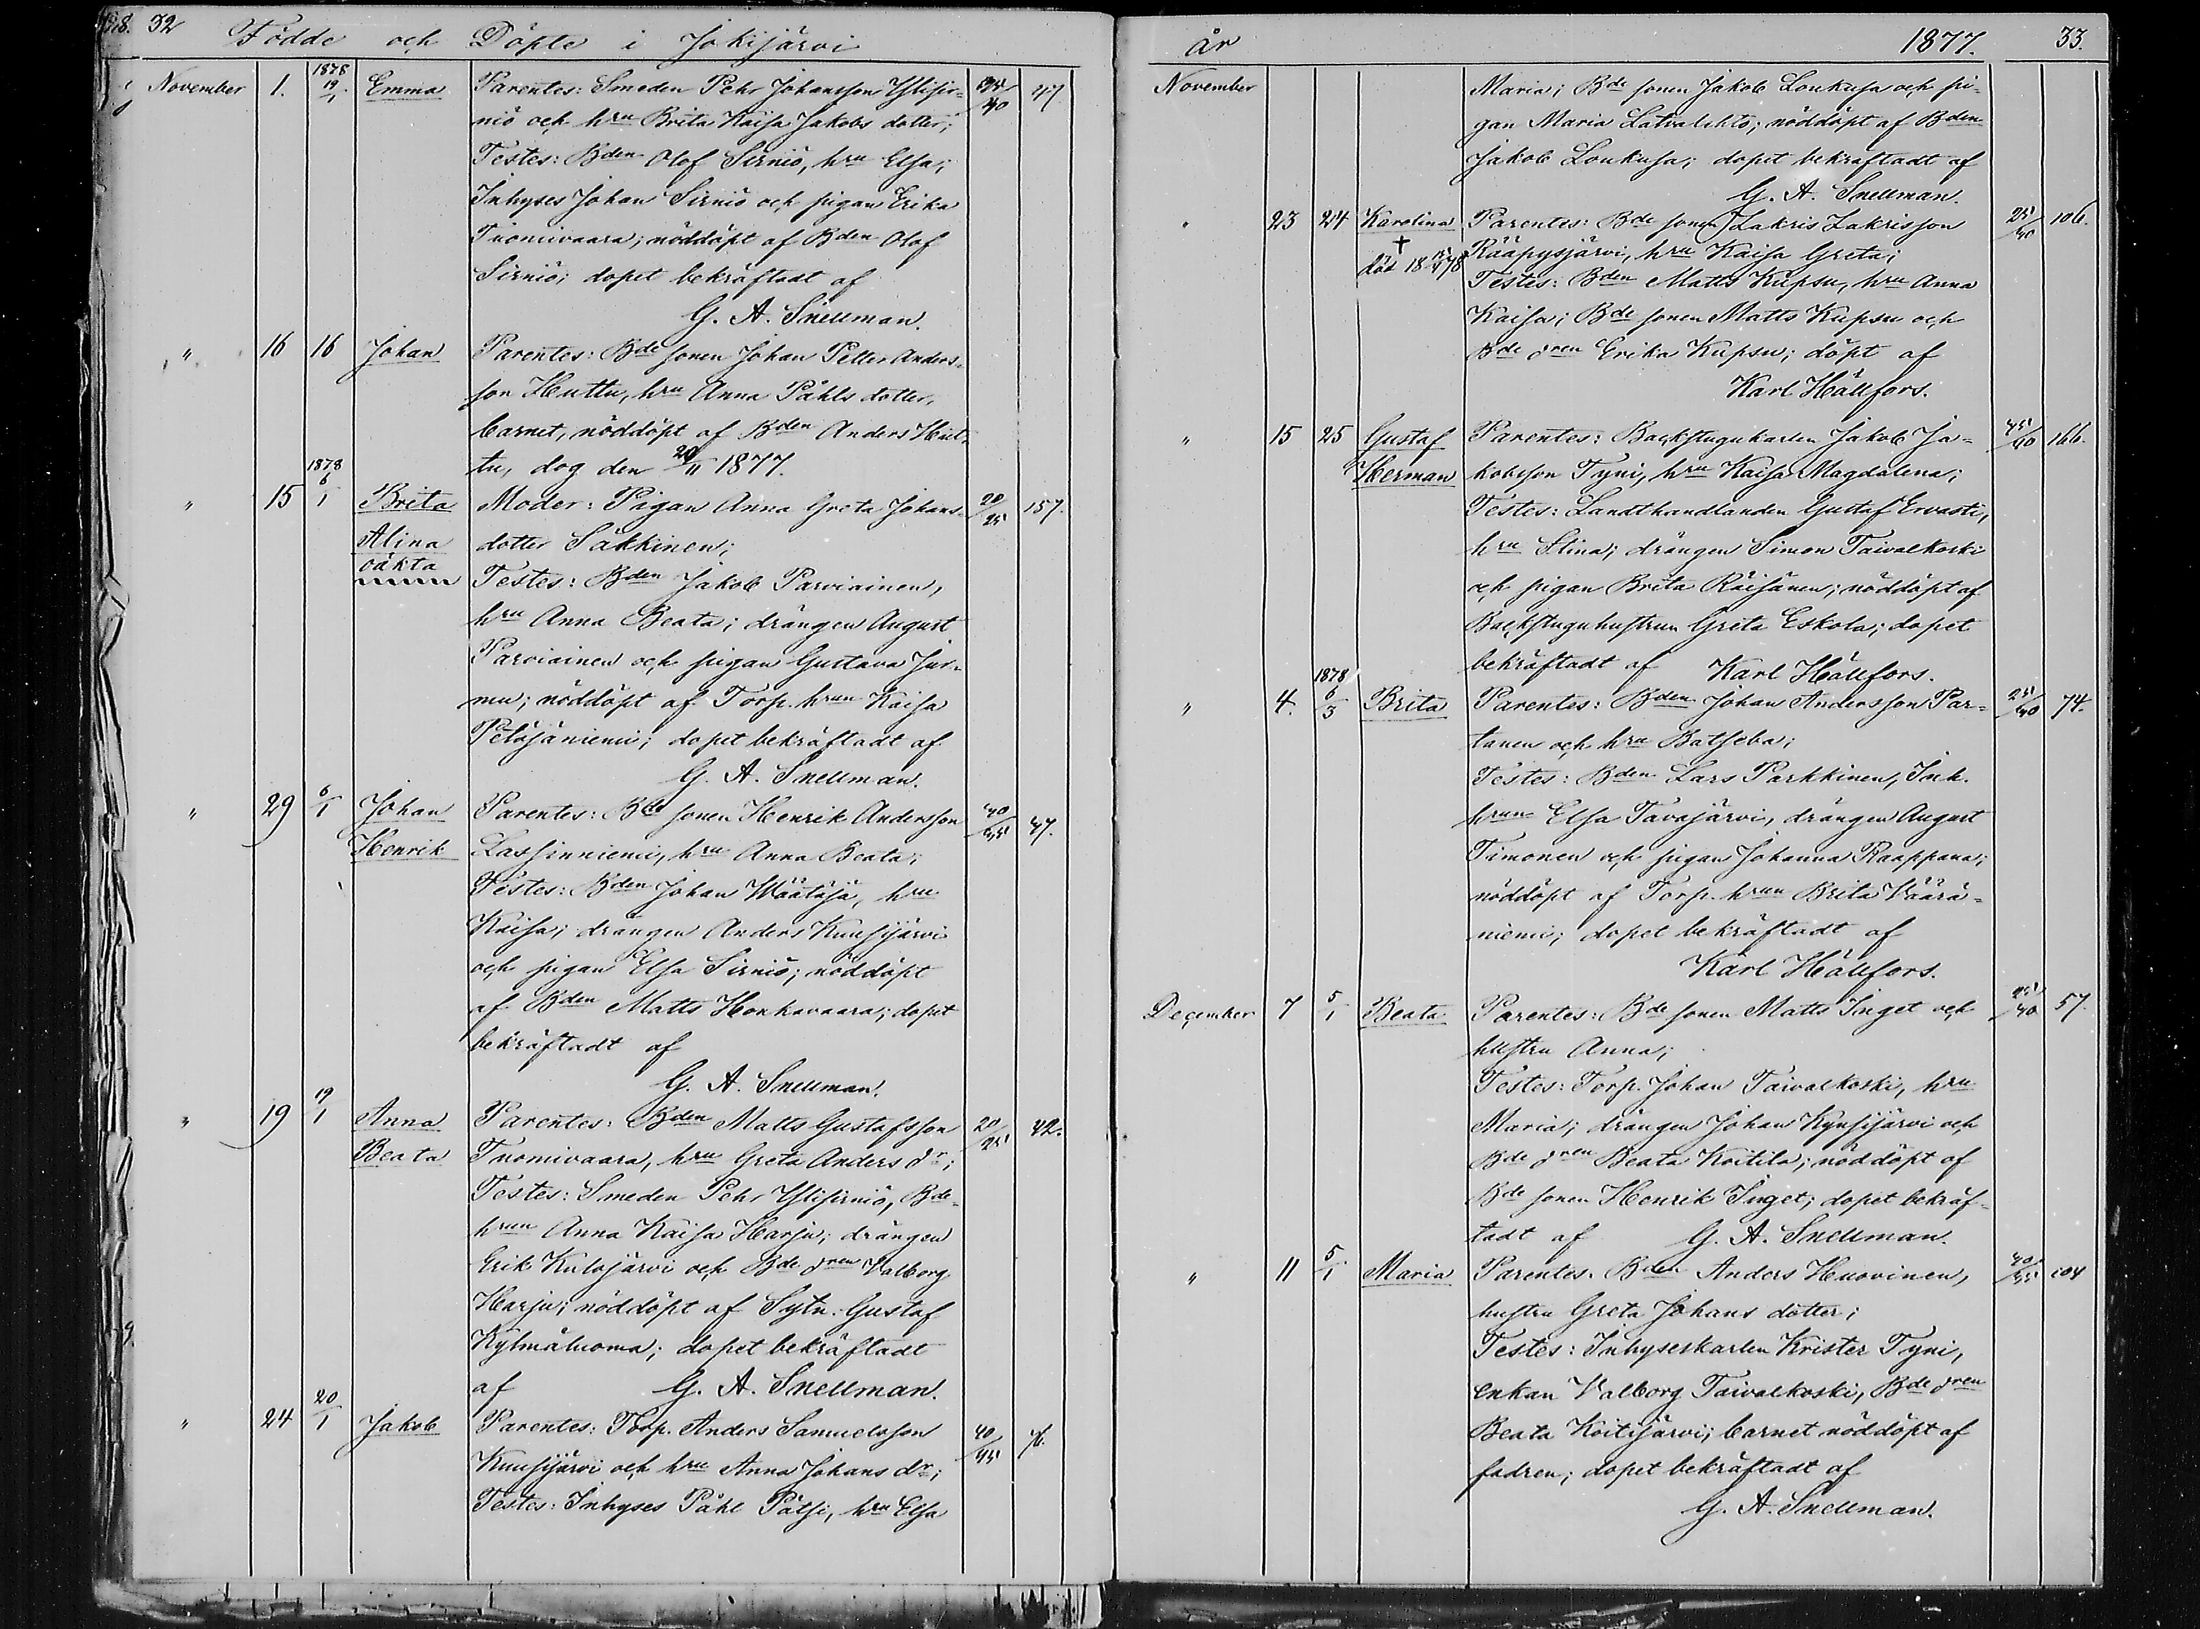 32 Födde och Döpte i Jokijärvi
November 1. 1878 19/1. Emma Parentes: Smeden Pehr Johansson Ylisir- 35/40 47
niö och hru Brita Kaisa Jakobs dotter;
Testes: Bden Olof Sirniö, hru Elsa;
Inhyses Johan Sirniö och pigan Erika
Tuomivaara; nöddöpt af Bden Olof
Sirniö; dopet bekräftadt af
G. A. Snellman.
" 16 16 Johan Parentes: Bde sonen Johan Petter Anders-
son Huttu, hru Anna Påhls dotter,
barnet, nöddöpt af Bden Anders Hut-
tu, dog den 20/11 1877.
" 15 1878 6/1 Brita Moder: Pigan Anna Greta Johans- 20/25 157.
Alina dotter Säkkinen;
oäkta Testes: Bden Jakob Parviainen,
hru Anna Beata; drängen August
Parviainen och pigan Gustava Jur-
mu; nöddöpt af Torp. hrun Kaisa
Petäjäniemi; dopet bekräftadt af
G. A. Snellman.
" 29 6/1 Johan Parentes: Bde sonen Henrik Andersson 40/45 47.
Henrik Lassinniemi, hru Anna Beata;
Testes: Bden Johan Määttäjä, hru
Kaisa; drängen Anders Kuusijärvi
och pigan Elsa Sirniö; nöddöpt
af Bden Matts Honkavaara; dopet
bekräftadt af
G. A. Snellman.
" 19 19/1 Anna Parentes: Bden Matts Gustafsson 20/25 42.
Beata Tuomivaara, hru Greta Anders dr;
Testes: Smeden Pehr Ylisirniö, Bde-
hrun Anna Kaisa Harju; drängen
Erik Kulojärvi och Bde dren Valborg
Harju; nöddöpt af Sytn. Gustaf
Kylmäluoma; dopet bekräftadt
af G. A. Snellman.
" 24 20/1 Jakob Parentes: Torp. Anders Samuelsson 40/45 76.
Kuusijärvi och hru Anna Johans dr;
Testes: Inhyses Påhl Pätsi, hru Elsa
år 1877. 33.
November Maria; Bde sonen Jakob Loukusa och pi-
gan Maria Latvalehto; nöddöpt af Bden
Jakob Loukusa; dopet bekräftadt af
G. A. Snellman.
" 23 24 Karolina Parentes: Bde sonen Zakris Zakrisson 25/40 106.
† död 18 78 Rääpysjärvi, hru Kaisa Greta;
Testes: Bden Matts Kupsu, hru Anna
Kaisa; Bde sonen Matts Kupsu och
Bde dren Erika Kupsu; döpt af
Karl Hällfors.
" 15 25 Gustaf Parentes: Backstugukarlen Jakob Ja- 166.
Herman kobsson Tyni, hru Kaisa Magdalena;
Testes: Landthandlanden Gustaf Ervasti,
hru Stina; drängen Simon Taivalkoski
och pigan Brita Räisänen; nöddöpt af
Backstuguhustrun Greta Eskola; dopet
bekräftadt af Karl Hällfors.
" 4. 1878 6/3 Brita Parentes: Bden Johan Andersson Par- 25/40 74.
tanen och hru Batseba;
Testes: Bden Lars Parkkinen, Inh.
hrun Elsa Tavajärvi, drängen August
Timonen och pigan Johanna Raappana;
nöddöpt af Torp. hrun Brita Väärä-
niemi; dopet bekräftadt af
Karl Hällfors.
December 7 5/1 Beata Parentes: Bde sonen Matts Inget och 57.
hustru Anna;
Testes: Torp. Johan Taivalkoski, hru
Maria; drängen Johan Kynsijärvi och
Bde dren Beata Koitila; nöddöpt af
Bde sonen Henrik Inget; dopet bekräf-
tadt af G. A. Snellman.
" 11 5/1 Maria Parentes: Bden Anders Huovinen, 104
hustru Greta Johans dotter;
Testes: Inhyseskarlen Krister Tyni,
enkan Valborg Taivalkoski, Bde dren
Beata Koitijärvi; barnet nöddöpt af
fadren; dopet bekräftadt af
G. A. Snellman.